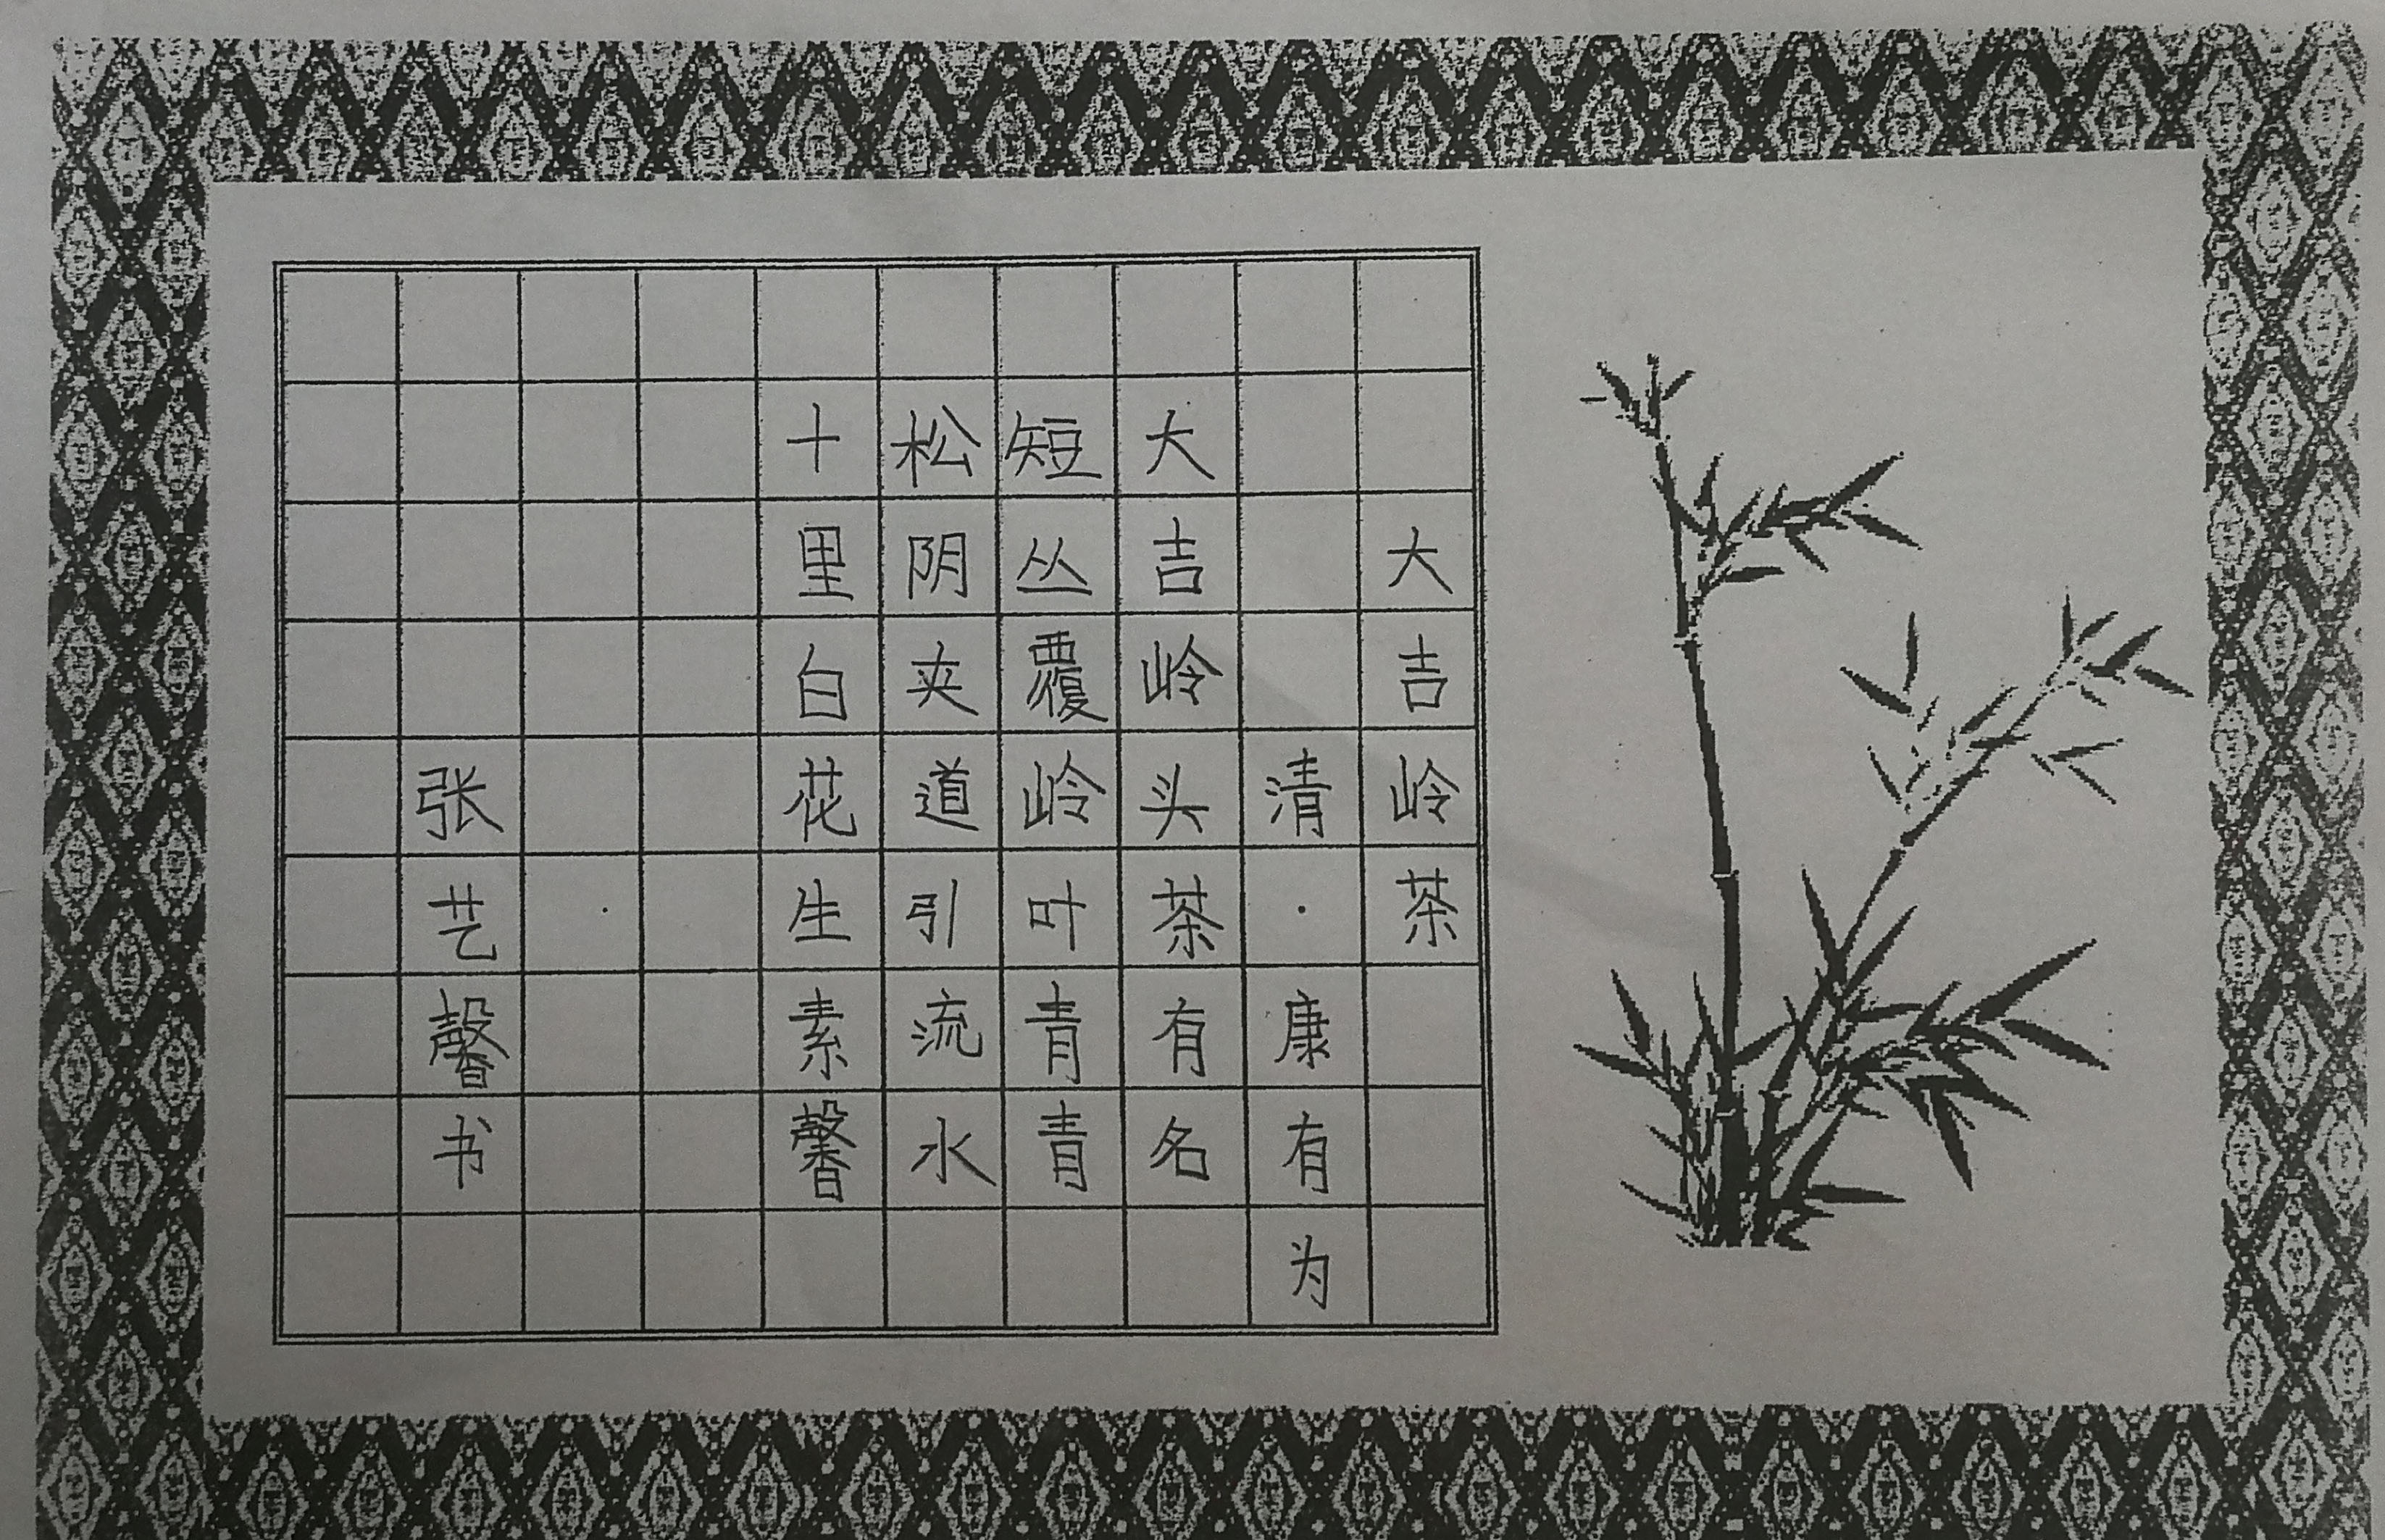 大吉岭茶
清·康有为
大吉岭头茶有名
短丛覆岭叶青青
松阴夹道引流水
十里白花生素馨
张艺馨书